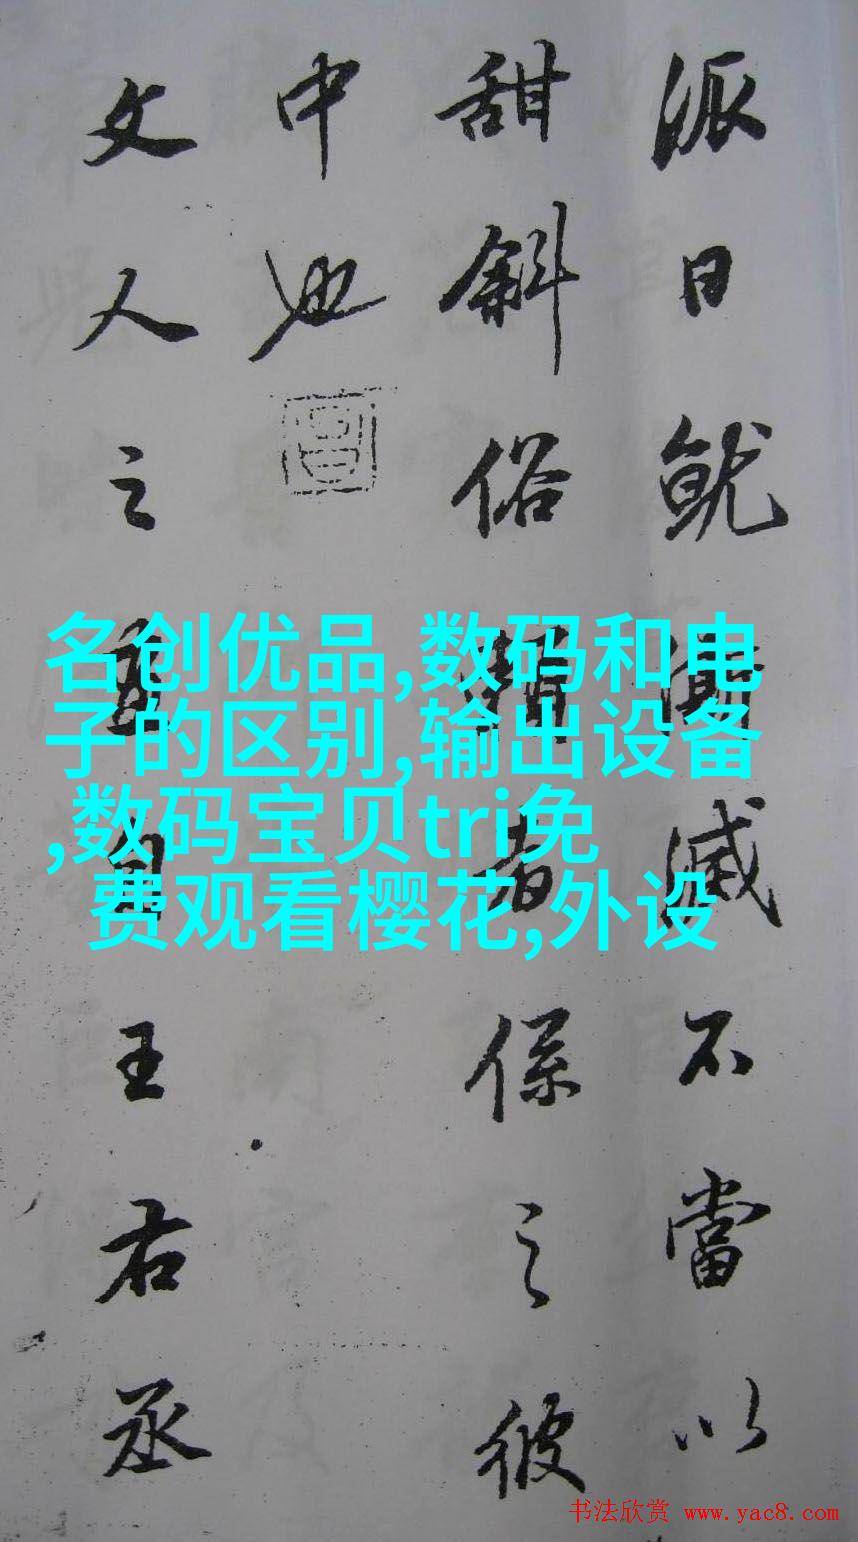 派日就滅不當以
甜斜俗者係之彼
中也
文人之自王右丞
名创优品,数码和电
子的区别,输出设备
,数码宝贝tri免
费观看樱花,外设
书法欣赏 www.yac8.com